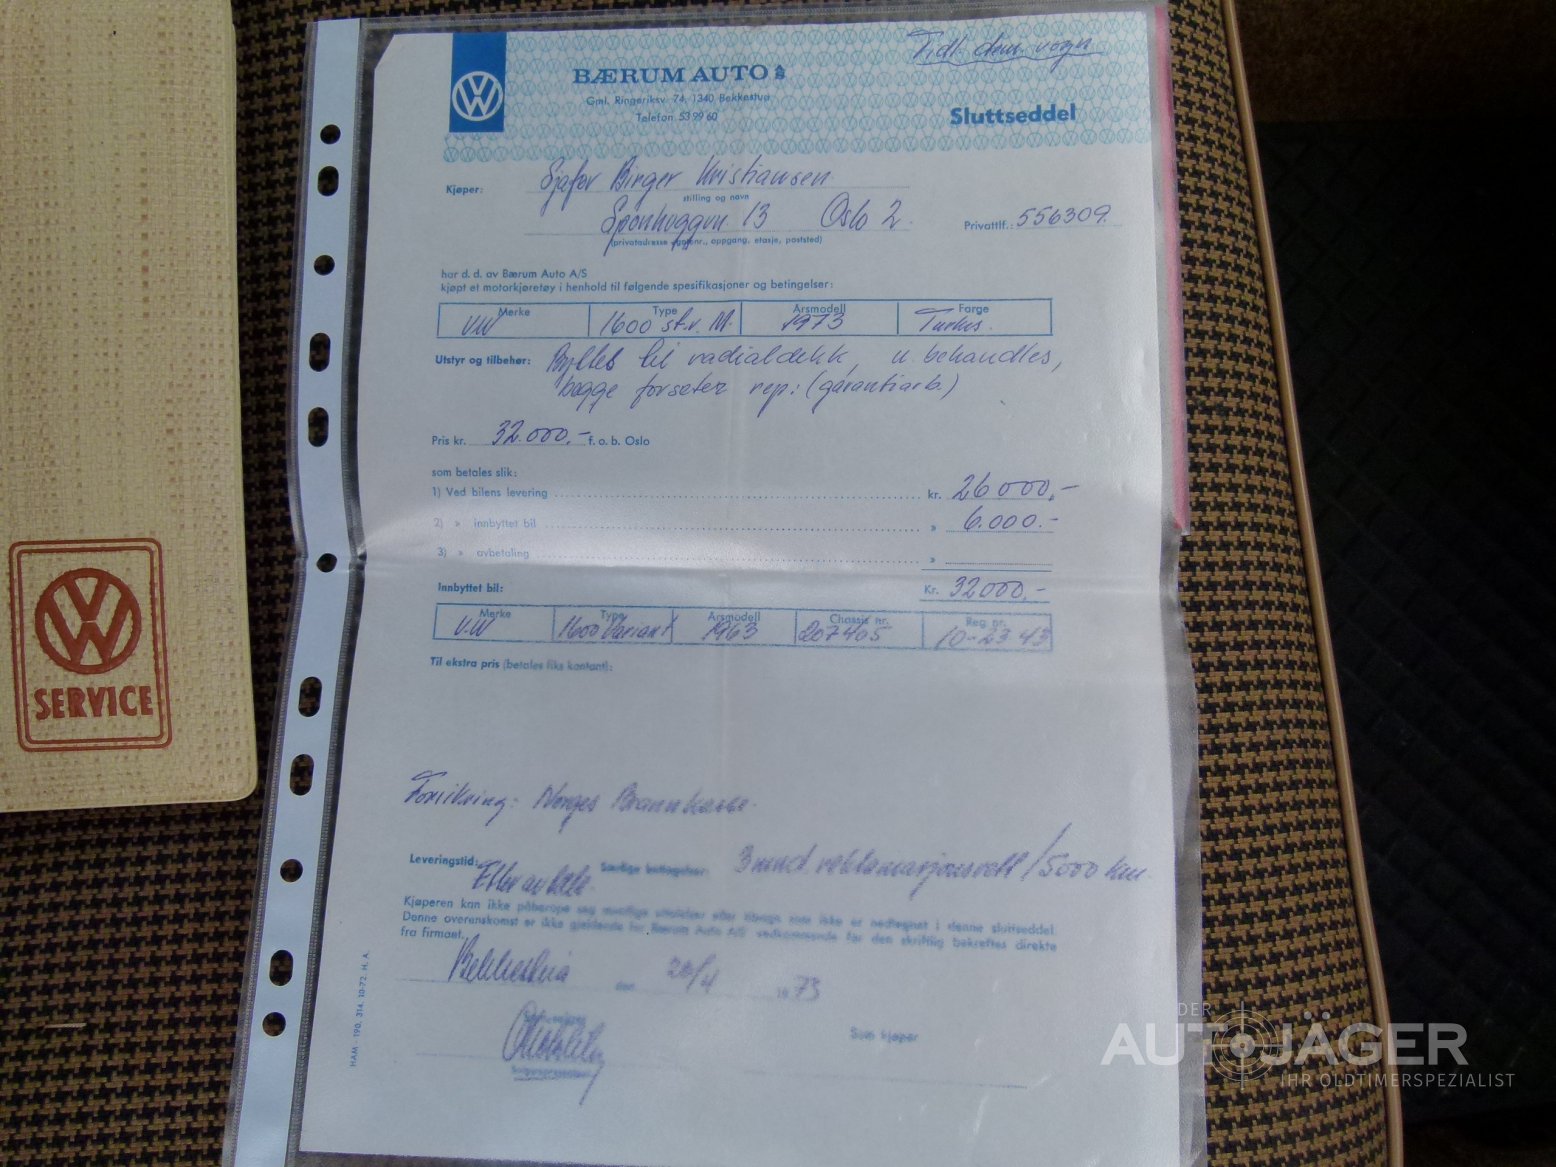 Tidl. dem. vogn
BÆRUM AUTO A/S
Gml. Ringeriksv. 74, 1340 Bekkestua
Telefon 53 99 60
Sluttseddel
Kjøper: Sjåfør Birger Kristiansen
stilling og navn
13 Oslo 2. Privattlf.: 556309.
(privatadresse, oppgang, etasje, poststed)
har d. d. av Bærum Auto A/S
kjøpt et motorkjøretøy i henhold til følgende spesifikasjoner og betingelser:
Merke Type Årsmodell Farge
VW 1600 st.v. M. 1973 Turkis.
Utstyr og tilbehør: Byttes til radialdekk, u behandles,
begge forseter rep.: (garantiarb.)
Pris kr. 32.000,- f. o. b. Oslo
som betales slik:
1) Ved bilens levering kr. 26000,-
2) » innbyttet bil » 6.000.-
3) » avbetaling »
Innbyttet bil: Kr. 32000,-
Merke Type Årsmodell Chassis nr. Reg. nr.
V.W 1600 Variant 1963 207465 10-23 43
Til ekstra pris (betales liks kontant):
Forsikring: Norges Brannkasse.
Leveringstid: Etter avtale. Særlige betingelser: 3 mnd. reklamasjonsrett / 5000 km.
Kjøperen kan ikke påberope seg muntlige uttalelser eller tilsagn som ikke er nedtegnet i denne sluttseddel.
Denne overenskomst er ikke gjeldende for Bærum Auto A/S vedkommende før den skriftlig bekreftes direkte
fra firmaet.
Bekkestua den 26/4 1973
Som kjøper
HAM - 190. 314. 10-72. H. A.
VW
SERVICE
DER
AUTOJÄGER
IHR OLDTIMERSPEZIALIST